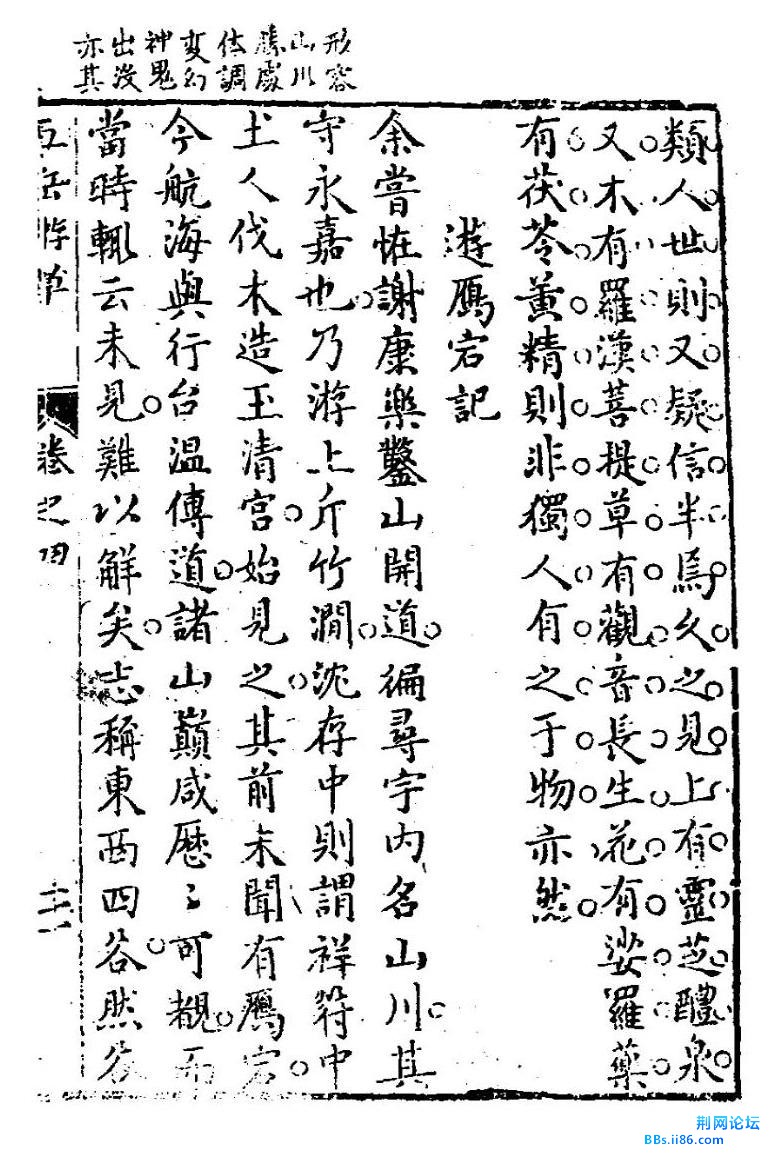 形容
山川
勝處
体調
変幻
神鬼
出没
亦其
類人世則又疑信半焉久之見上有靈芝醴泉
又木有羅漢菩提草有觀音長生花有娑羅藥
有茯苓黃精則非獨人有之于物亦然
遊鴈宕記
余嘗恠謝康樂鑿山開道徧尋宇内名山川其
守永嘉也乃游止斤竹澗沈存中則謂祥符中
土人伐木造玉清宮始見之其前未聞有鴈宕
今航海與行台温傳道諸山巔咸歷〻可覩而
當時輒云未見難以解矣志稱東西四谷然
五岳游草
卷之四
荆网论坛
BBs.ii86.com